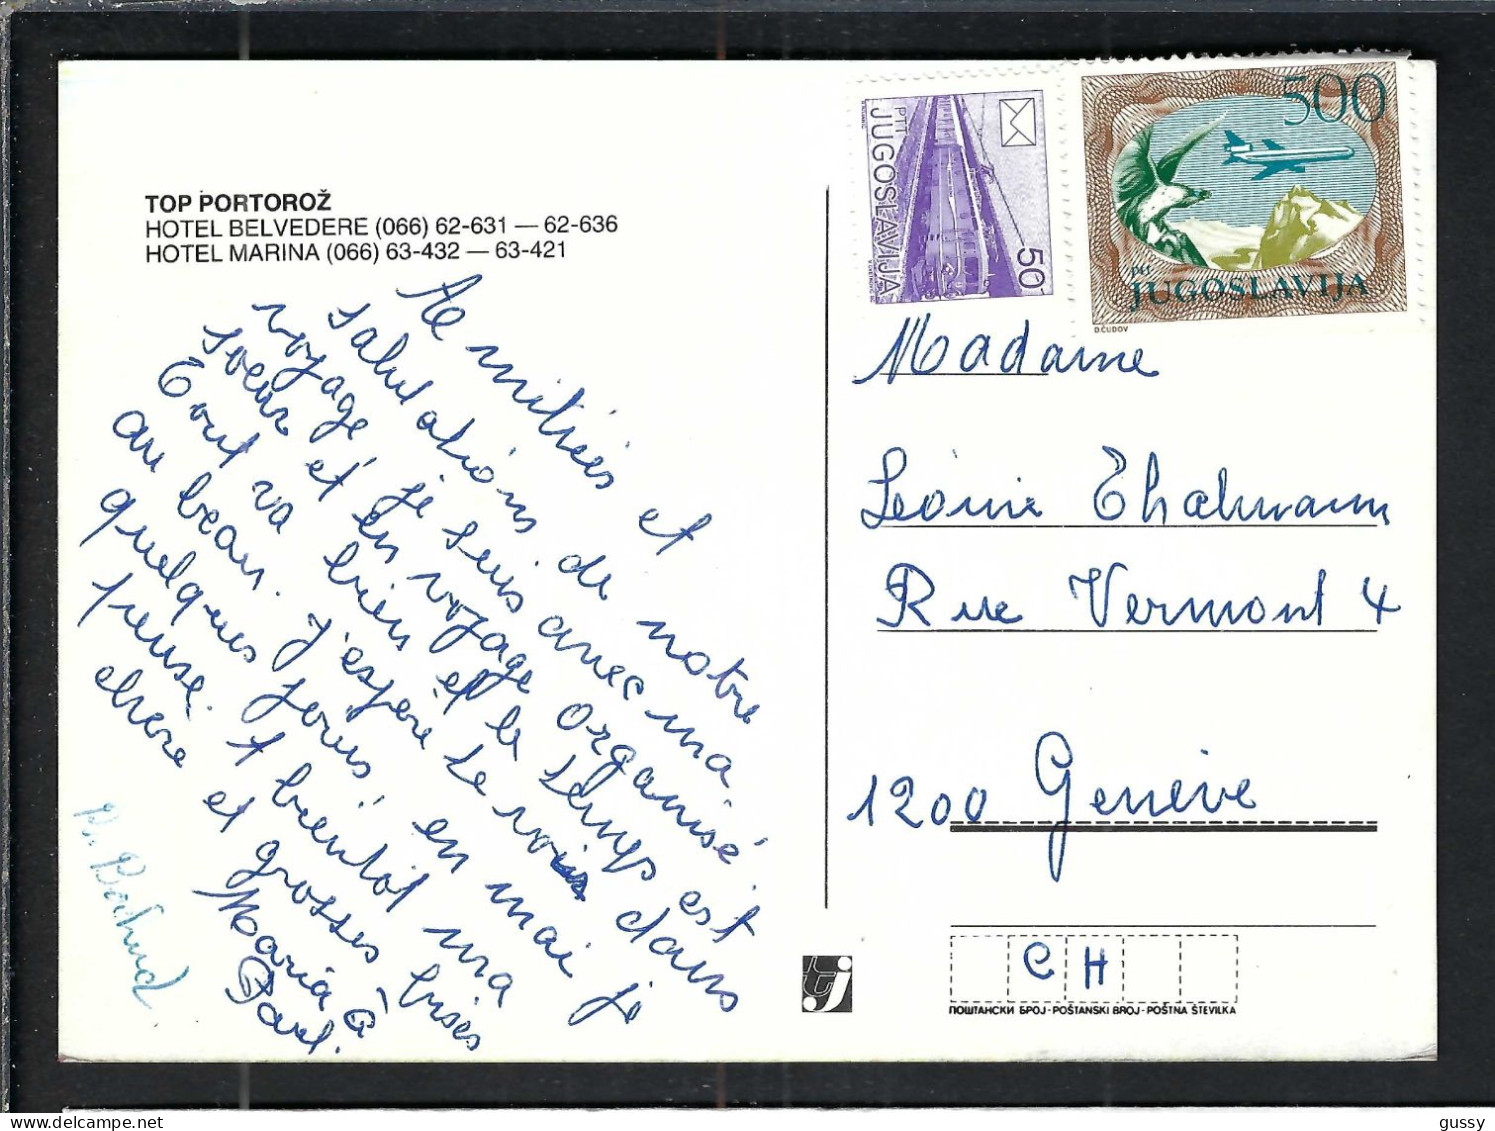 TOP PORTOROŽ
HOTEL BELVEDERE (066) 62-631 — 62-636
HOTEL MARINA (066) 63-432 — 63-421
Amitiés et
salutations de notre
voyage, je suis avec ma
soeur et en voyage organisé.
Tout va bien et le temps est
au beau. J'espère te voir dans
quelques jours, en mai je
pense. A bientôt ma
chère et grosses bises
Maria
Paul.
PTT
JUGOSLAVIJA
50
500
ptt
JUGOSLAVIJA
D.ČUDOV
Madame
Léonie Thalmann
Rue Vermont 4
1200 Genève
CH
ПОШТАНСКИ БРОЈ - POŠTANSKI BROJ - POŠTNA ŠTEVILKA
tj
gussy